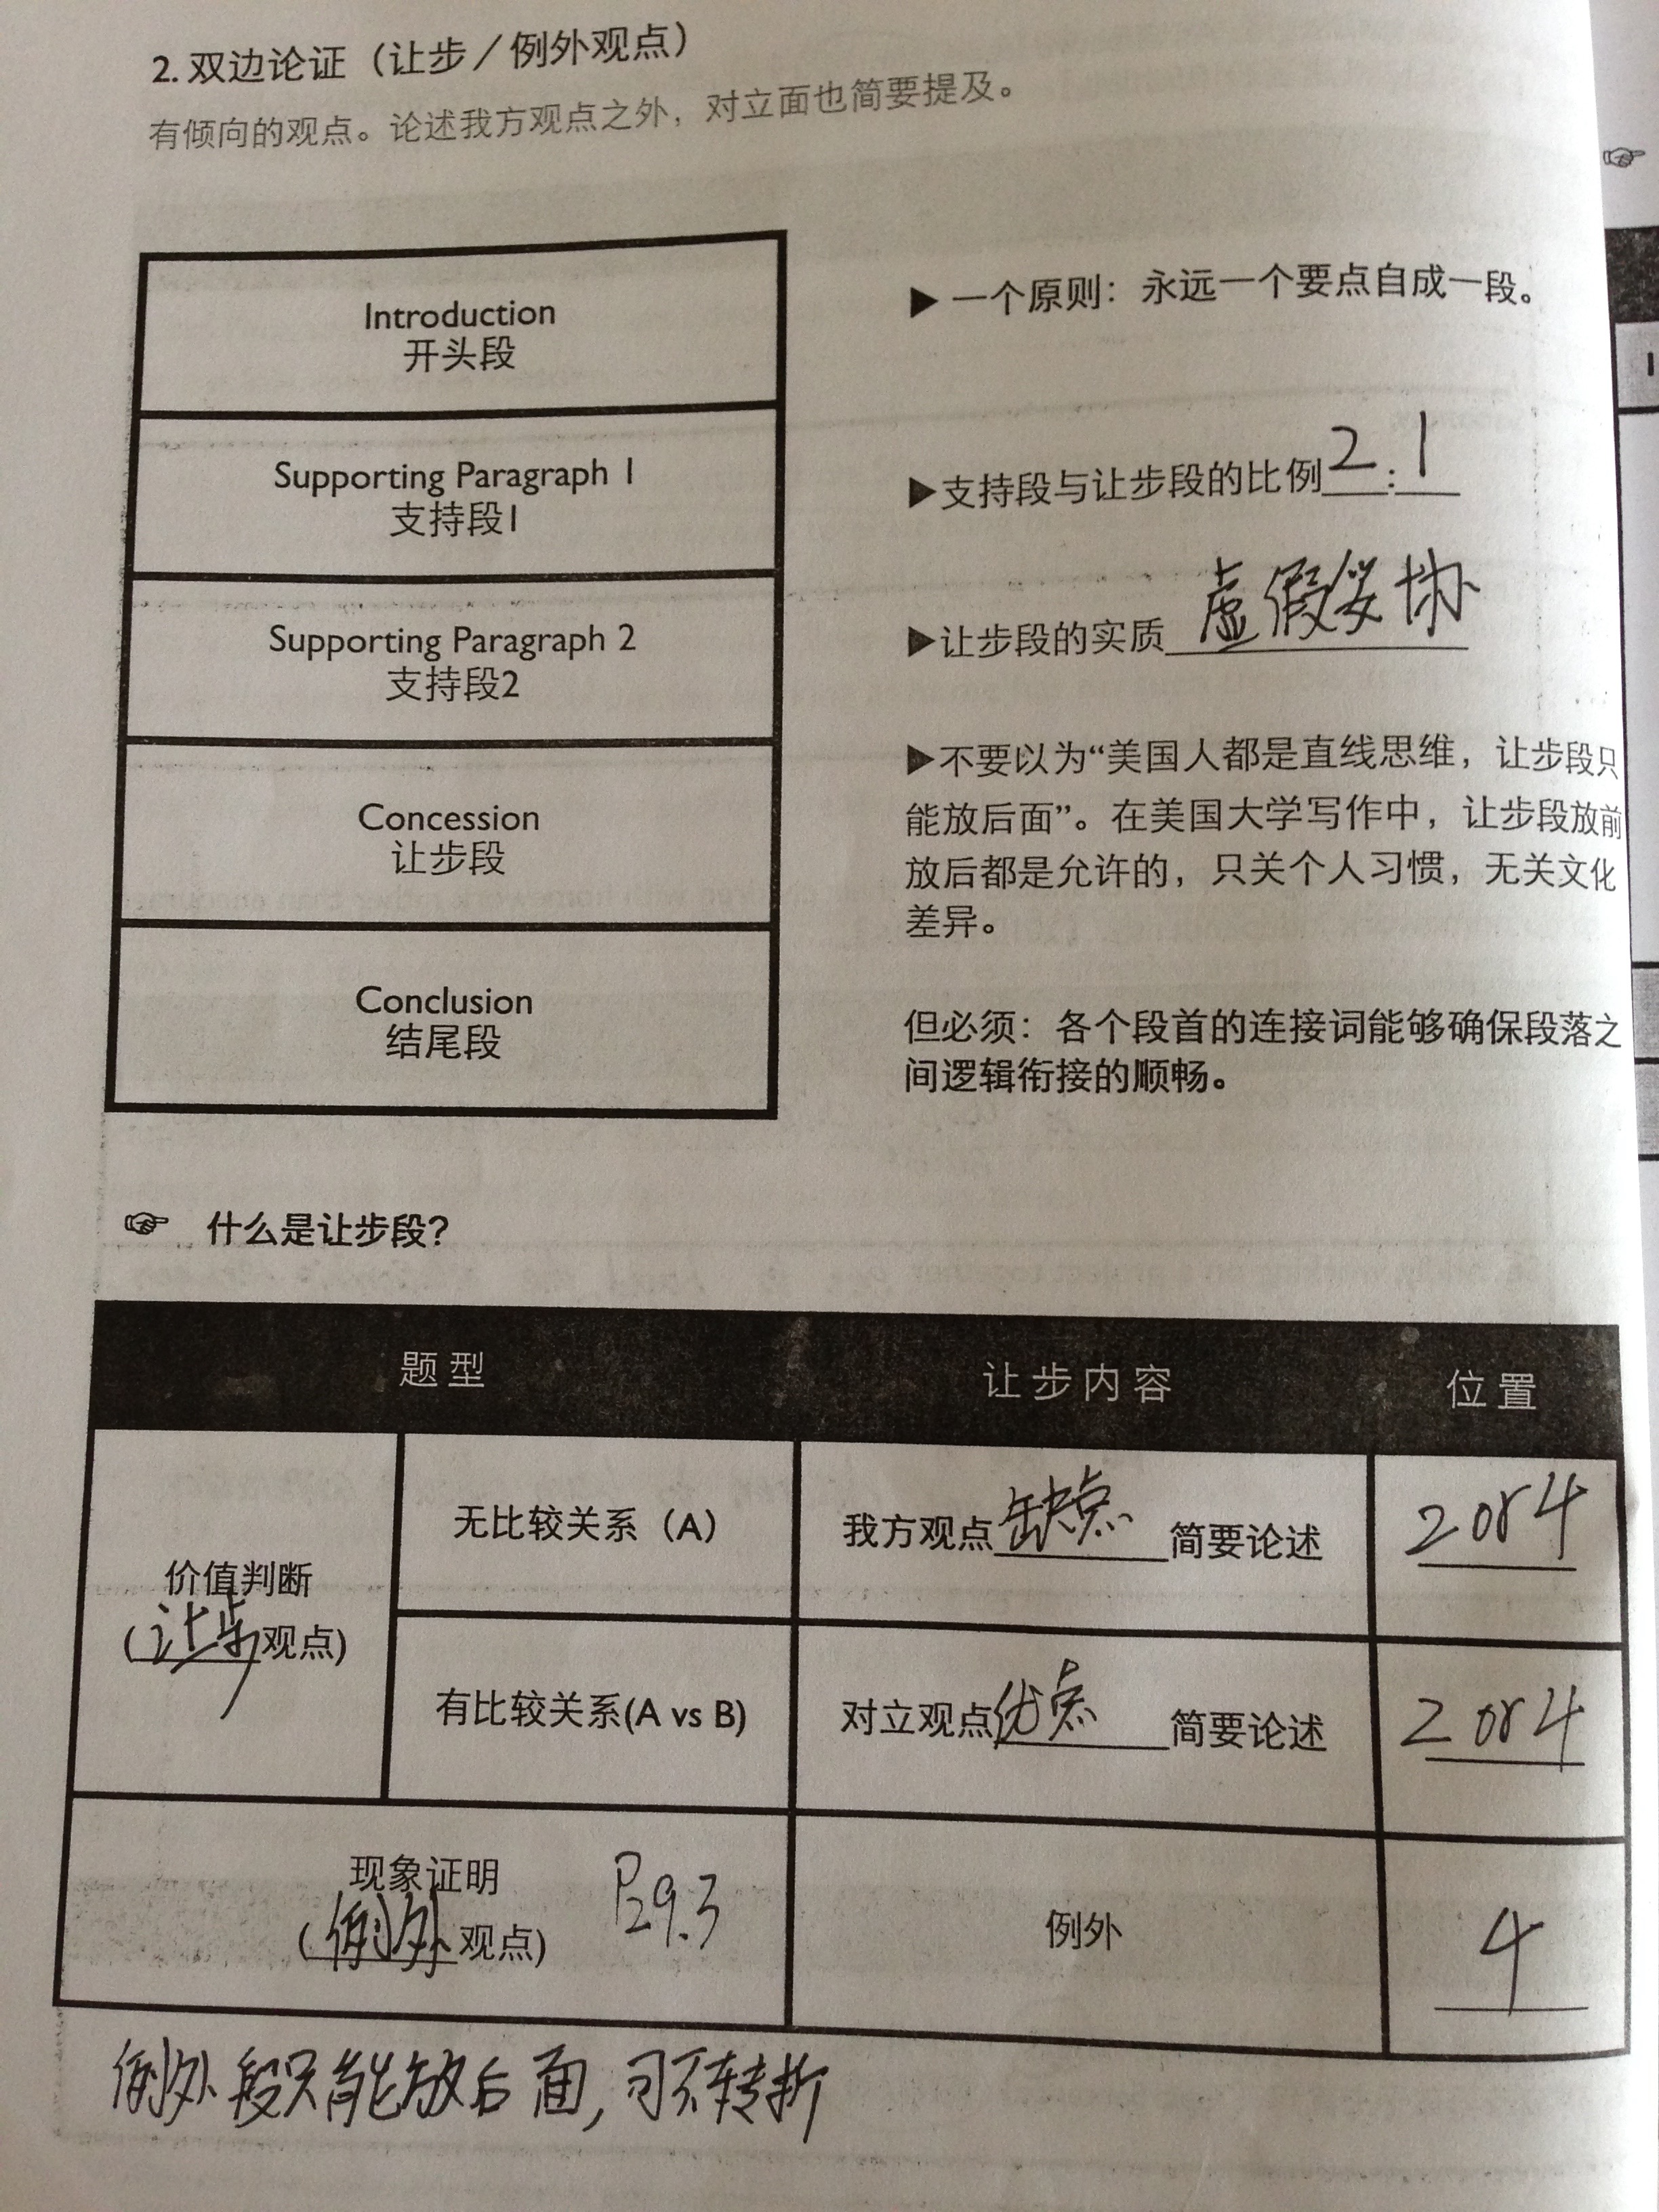 2. 双边论证（让步／例外观点）
有倾向的观点。论述我方观点之外，对立面也简要提及。
Introduction
开头段
Supporting Paragraph 1
支持段1
Supporting Paragraph 2
支持段2
Concession
让步段
Conclusion
结尾段
▶一个原则：永远一个要点自成一段。
▶支持段与让步段的比例2:1
▶让步段的实质虚假妥协
▶不要以为“美国人都是直线思维，让步段只
能放后面”。在美国大学写作中，让步段放前
放后都是允许的，只关个人习惯，无关文化
差异。
但必须：各个段首的连接词能够确保段落之
间逻辑衔接的顺畅。
☞ 什么是让步段？
题型 让步内容 位置
价值判断
(让步观点)
无比较关系（A） 我方观点缺点简要论述 2 or 4
有比较关系(A vs B) 对立观点优点简要论述 2 or 4
现象证明 P29.3
(例外观点)
例外 4
例外段只能放后面，可不转折
1